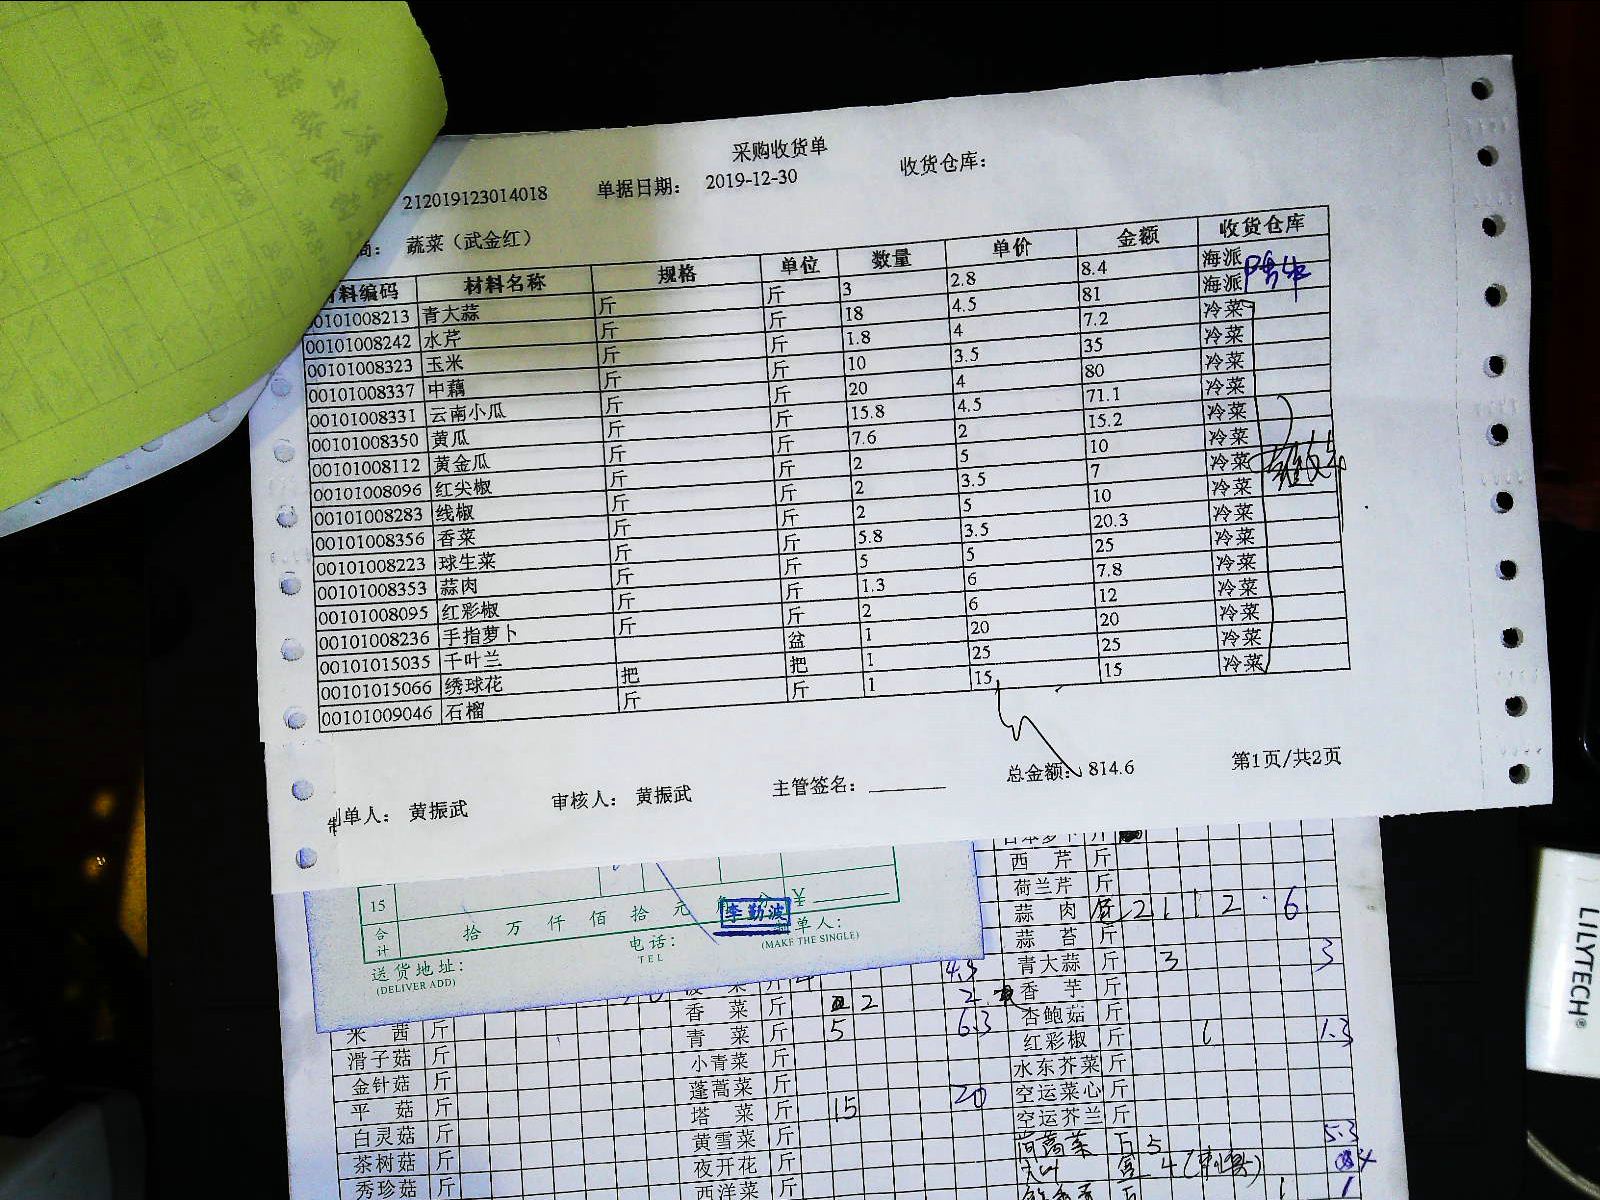 采购收货单
212019123014018 单据日期： 2019-12-30 收货仓库：
商： 蔬菜（武金红）
材料编码 材料名称 规格 单位 数量 单价 金额 收货仓库
00101008213 青大蒜 斤 斤 3 2.8 8.4 海派
00101008242 水芹 斤 斤 18 4.5 81 海派
00101008323 玉米 斤 斤 1.8 4 7.2 冷菜
00101008337 中藕 斤 斤 10 3.5 35 冷菜
00101008331 云南小瓜 斤 斤 20 4 80 冷菜
00101008350 黄瓜 斤 斤 15.8 4.5 71.1 冷菜
00101008112 黄金瓜 斤 斤 7.6 2 15.2 冷菜
00101008096 红尖椒 斤 斤 2 5 10 冷菜
00101008283 线椒 斤 斤 2 3.5 7 冷菜
00101008356 香菜 斤 斤 2 5 10 冷菜
00101008223 球生菜 斤 斤 5.8 3.5 20.3 冷菜
00101008353 蒜肉 斤 斤 5 5 25 冷菜
00101008095 红彩椒 斤 斤 1.3 6 7.8 冷菜
00101008236 手指萝卜 斤 斤 2 6 12 冷菜
00101015035 千叶兰 盆 1 20 20 冷菜
00101015066 绣球花 把 把 1 25 25 冷菜
00101009046 石榴 斤 斤 1 15 15 冷菜
总金额： 814.6 第1页/共2页
制单人： 黄振武 审核人： 黄振武 主管签名：
15
合计 拾 万 仟 佰 拾 元 角 分 ¥
李勤波
送货地址： 电话： 制单人：
(DELIVER ADD) TEL (MAKE THE SINGLE)
日本萝卜 斤
西芹 斤
荷兰芹 斤
蒜肉 斤 2 1 1 2 6
蒜苔 斤
青大蒜 斤 3 3
菠菜 斤 4 4.3 香芋 斤
香菜 斤 2 2 杏鲍菇 斤
米茜 斤 青菜 斤 5 6.3 红彩椒 斤 1 1.3
滑子菇 斤 小青菜 斤 水东芥菜 斤
金针菇 斤 蓬蒿菜 斤 20 空运菜心 斤
平菇 斤 塔菜 斤 15 空运芥兰 斤
白灵菇 斤 黄雪菜 斤 茼蒿菜 斤 5 5.3
茶树菇 斤 夜开花 斤 4
秀珍菇 斤 西洋菜 斤 1 1
LILYTECH®